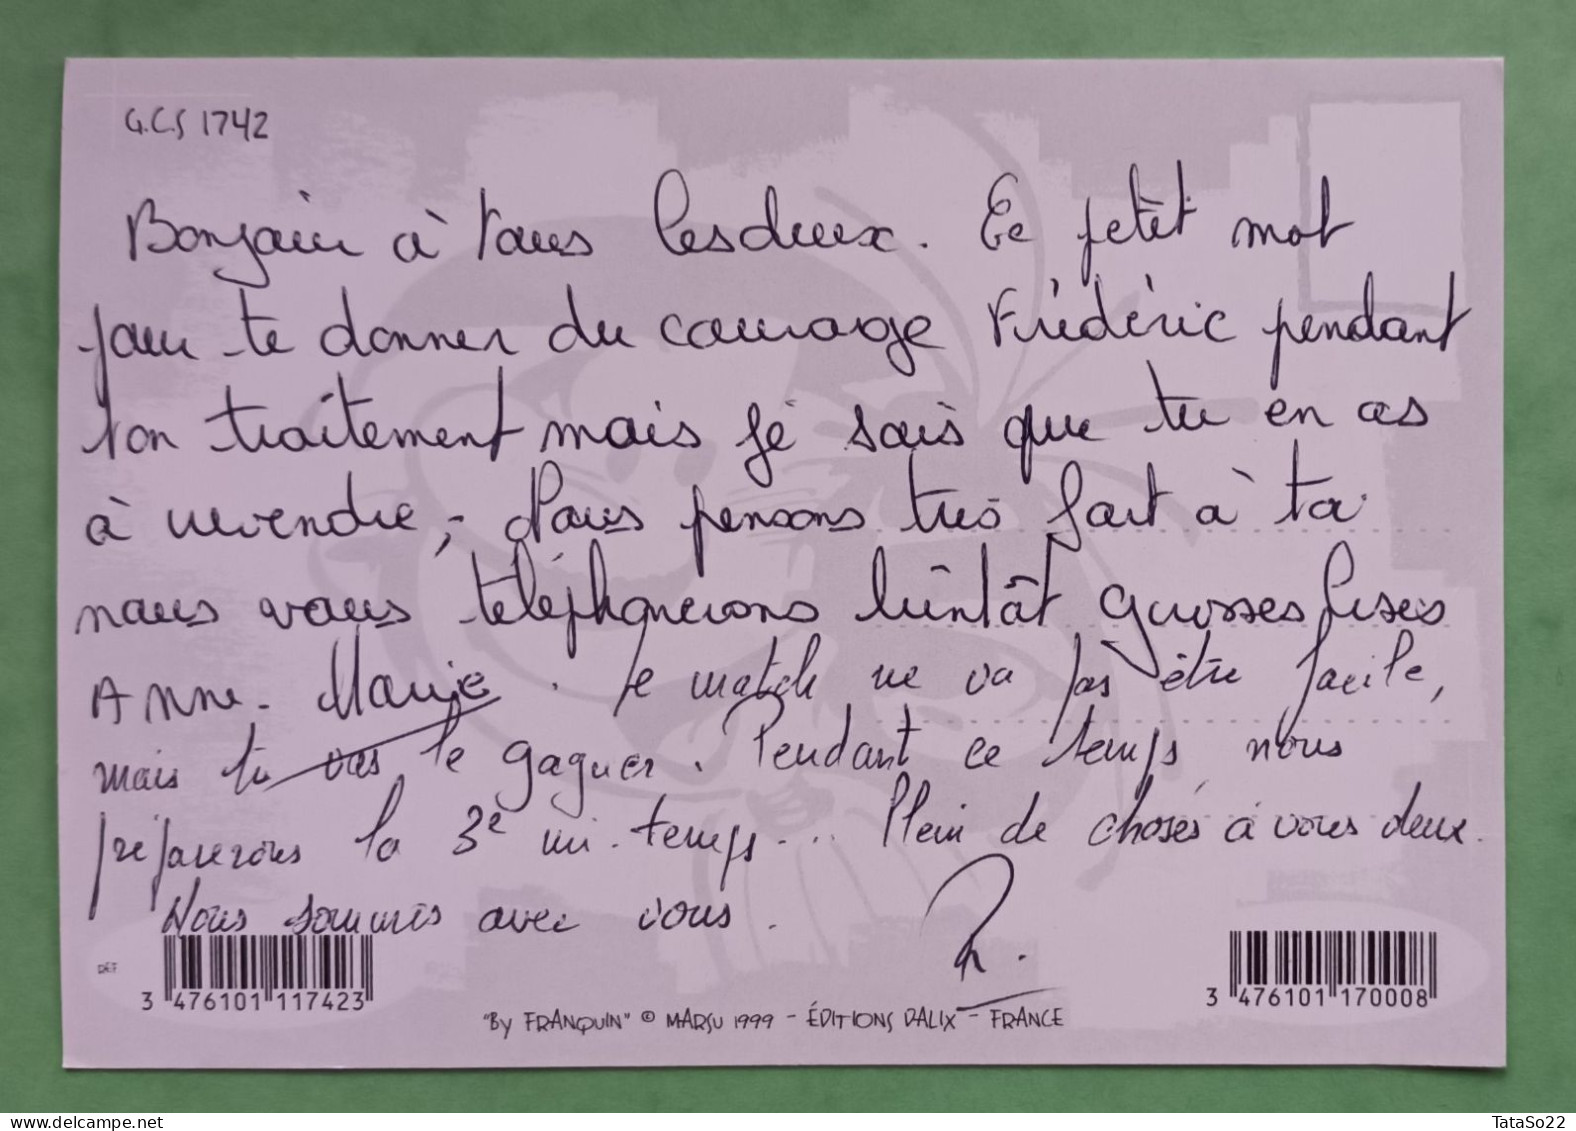 G.C.S 1742
Bonjour à tous les deux. Ce petit mot
pour te donner du courage Frédéric pendant
ton traitement mais je sais que tu en as
à revendre, Nous pensons très fort à toi
nous vous téléphonerons bientôt grosses bises
Anne-Marie. Le match ne va pas être facile,
mais tu vas le gagner. Pendant ce temps, nous
préparerons la 3e mi-temps... Plein de choses à vous deux.
Nous sommes avec vous.
DEF
3 476101 117423
3 476101 170008
"By FRANQUIN" © MARSU 1999 - ÉDITIONS DALIX - FRANCE
www.delcampe.net
TataSo22